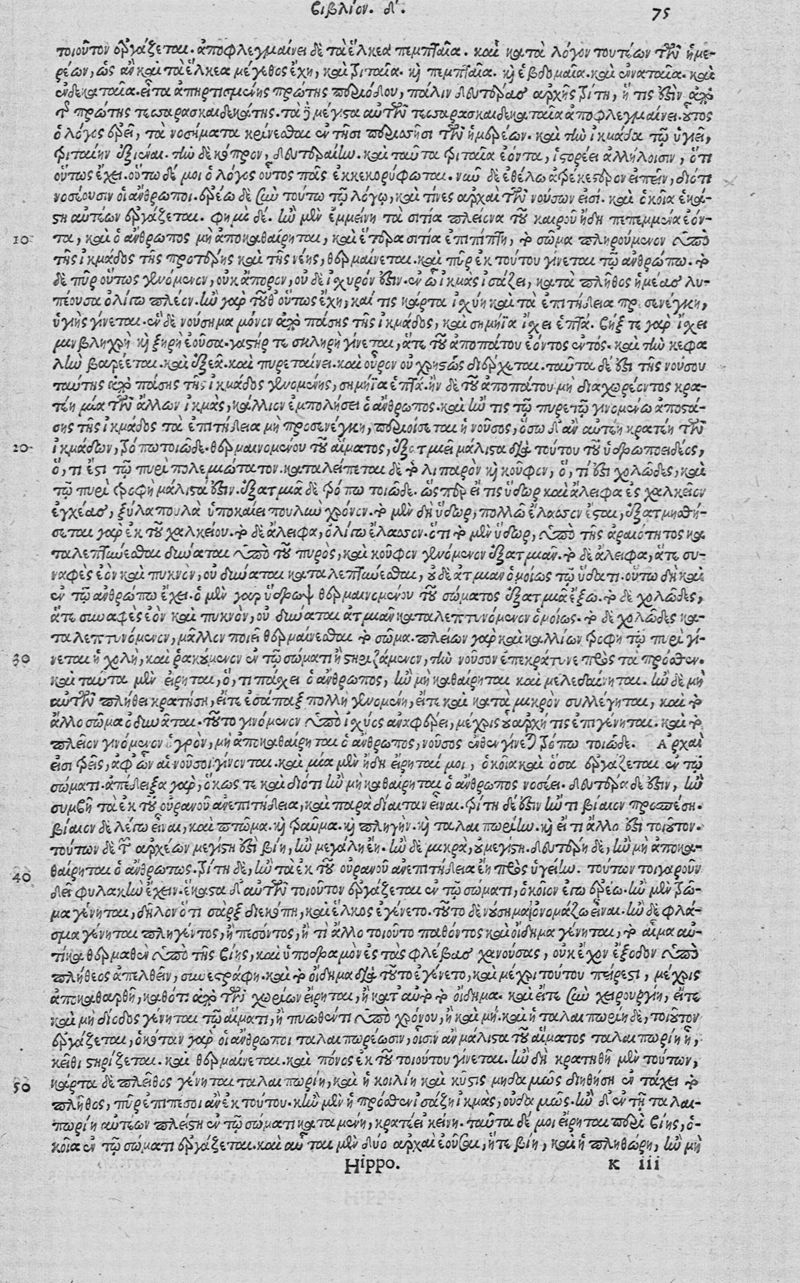 Βιβλίον. δ'. 75
τοιοῦτον ἐργάζεται. ἀποφλεγμαίνει δὲ τὰ ἕλκεα πεμπταῖα. καὶ κατὰ λόγον τουτέων τῶν ἡμε-
ρέων, ὡς ἂν καὶ τὰ ἕλκεα μέγεθος ἔχῃ, καὶ τριταῖα. κὴ πεμπταῖα. κὴ ἑβδομαῖα. καὶ ἐναταῖα. καὶ
ἑνδεκαταῖα. εἶτα ἀπηρτισμένης πρώτης περιόδου, πάλιν δευτέρας ἀρχῆς τρίτη, ἥ τις ἐστὶν ἀπὸ
τῆς πρώτης τεσσαρασκαιδεκάτης. τὰ δὲ μέγιστα αὐτῶν τεσσαρασκαιδεκαταῖα ἀποφλεγμαίνει. οὗτος
ὁ λόγος ἐρεῖ, τὰ νοσήματα κρίνεσθαι ἐν τῇσι περισσῇσι τῶν ἡμερέων. καὶ τὴν ἰκμάδα τῇ ὑγιεῖ,
τριταίην ἐξιέναι. τὴν δὲ κόπρον, δευτεραίην. καὶ ταῦτα τριταῖα ἐόντα, ἱστορέει ἀλλήλοισιν, ὅτι
οὕτως ἔχει. οὕτω δέ μοι ὁ λόγος οὗτος πᾶς ἐκκεκορύφωται. νῦν δὲ ἐθέλω εἰπεῖν, διότι
νοσέουσιν οἱ ἄνθρωποι. ἐρέω δὲ ξὺν τούτῳ τῷ λόγῳ, καὶ τίνες ἀρχαὶ τῶν νούσων εἰσί. καὶ ὁκοῖα ἑκά-
στη αὐτέων ἐργάζεται. φημὶ δὲ. ἢν μὲν ἐμμείνῃ τὰ σιτία πλείονα τοῦ καιροῦ ἤδη πεπεμμένα ἐόν-
10 τα, καὶ ὁ ἄνθρωπος μὴ ἀποκαθαίρηται, καὶ ἕτερα σιτία ἐπιπίπτῃ, τὸ σῶμα πληρούμενον ὑπὸ
τῆς ἰκμάδος τῆς προτέρης καὶ τῆς νέης, θερμαίνεται. καὶ πῦρ ἐκ τούτου γίνεται τῷ ἀνθρώπῳ. τὸ
δὲ πῦρ οὕτως γενόμενον, οὐκ ἄπορον, οὐδὲ ἰσχυρόν ἐστιν. ἐν ᾧ ἰκμὰς ἰσάζει, κατὰ πλῆθος ἡμέας λυ-
πέουσα ὀλίγῳ πλέον. ἢν γὰρ τοῦθ' οὕτως ἔχῃ, καί τις κάρτα ἰσχύῃ καὶ τὰ ἐπιτήδεια προσενέγκῃ,
ὑγιὴς γίνεται. ἓν δὲ νούσημα μόνον ἀπὸ πάσης τῆς ἰκμάδος, καὶ σημήϊα ἴσχει ἑπτά. βήξ τε γὰρ ἴσχει
μιν βληχρὴ κὴ ξηρὴ ἐοῦσα. γαστήρ τε σκληρὴ γίνεται, ἅτε τοῦ ἀποπάτου ἐόντος ἐντός. καὶ τὴν κεφα
λὴν βαρέεται. καὶ ὀξέα. καὶ πυρεταίνει. καὶ οὖρον οὐ χρηστῶς διέρχεται. ταῦτα δὲ ἐπὶ τῆς νούσου
ταύτης ἀπὸ πάσης τῆς ἰκμάδος γενομένης, σημήϊα ἑπτά. ἢν δὲ τοῦ ἀποπάτου μὴ διαχωρέοντος κρα-
τέῃ μία τῶν ἄλλων ἰκμάς, κάλλιον ἐμπολήσει ὁ ἄνθρωπος. καὶ ἤν τις τῷ πυρετῷ γινομένῳ ἀπὸ πά-
σης τῆς ἰκμάδος τὰ ἐπιτήδεια μὴ προσενέγκῃ, περιοίσεται ἡ νοῦσος, ὅσῳ δ' ἂν αὐτὴν κρατέῃ τῶν
20 ἰκμάδων, τρόπῳ τοιῷδε. θερμαινομένου τοῦ αἵματος, ἐξατμιεῖ μάλιστα διὰ τούτου τοῦ ὑδρωποειδέος,
ὅ, τι ἐστὶ τῷ πυρὶ πολεμιώτατον. καταλείπεται δὲ τὸ λιπαρὸν κὴ κοῦφον, ὅ, τι ἐστὶ χολῶδες, καὶ
τῷ πυρὶ τροφὴ μάλιστά ἐστιν. ἐξατμιᾷ δὲ τρόπῳ τοιῷδε. ὥσπερ εἴ τις ὕδωρ καὶ ἄλειφα ἐς χαλκεῖον
ἐγχέας, ξύλα πολλὰ ὑποκαίει πουλὺν χρόνον. τὸ μὲν δὴ ὕδωρ, πολλῷ ἔλασσον ἔσται, ἐξατμηθή-
σεται γὰρ ἐκ τοῦ χαλκείου. τὸ δὲ ἄλειφα, ὀλίγῳ ἔλασσον. ὅτι τὸ μὲν ὕδωρ, ὑπὸ τῆς ἀραιότητος κα
ταλεπτύνεσθαι δύναται ὑπὸ τοῦ πυρὸς, καὶ κοῦφον γενόμενον ἐξατμιᾷν. τὸ δὲ ἄλειφα, ἅτε συ-
ναφὲς ἐὸν καὶ πυκνόν, οὐ δύναται καταλεπτύνεσθαι, οὐδὲ ἀτμιᾷν ὁμοίως τῷ ὕδατι. οὕτω δὴ καὶ
ἐν τῷ ἀνθρώπῳ ἔχει. ὁ μὲν γὰρ ὕδρωψ θερμαινομένου τοῦ σώματος ἐξατμιᾷ ἔξω. τὸ δὲ χολῶδες,
ἅτε συναφὲς ἐὸν καὶ πυκνόν, οὐ δύναται ἀτμιᾷν καταλεπτυνόμενον ὁμοίως. τὸ δὲ χολῶδες κα-
ταλεπτυνόμενον, μᾶλλον ποιεῖ θερμαίνεσθαι τὸ σῶμα. πλείων γὰρ καὶ καλλίων τροφὴ τῷ πυρὶ γί-
30 νεται ἡ χολή, καὶ ἐν τῷ σώματι ἢ στηριζόμενον, τὴν νοῦσον ἐπεκράτυνε πρὸς τὰ πρόσθεν.
καὶ ταῦτα μὲν εἴρηται, ὅ, τι πάσχει ὁ ἄνθρωπος, ἢν μὴ καθαίρηται καὶ μελεδαίνηται. ἢν δὲ μὴ
αὐτῶν πλήθει κρατήσῃ, εἴτε ἐσάπαξ πολλὴ γενομένη, εἴτε καὶ κατὰ μικρὸν συλλέγηται, καὶ τὸ
ἄλλο σῶμα ὀδυᾶται. τοῦτο γινόμενον ὑπὸ ἰσχύος ἀναφέρει, μέχρις οὗ ἀρχή τις ἐπιγένηται. καὶ τὸ
πλεῖον γινόμενον ὑγρόν, μὴ ἀποκαθαίρηται ὁ ἄνθρωπος, νοῦσος ἐνθεν γίνεται τρόπῳ τοιῷδε. Ἀρχαὶ
εἰσι τρεῖς, ἀφ' ὧν αἱ νοῦσοι γίνονται. καὶ μία μὲν ἤδη εἴρηταί μοι, ὁκοῖα καὶ ὅσα ἐργάζεται ἐν τῷ
σώματι. ἀπέδειξα γὰρ, ὅκως τε καὶ διότι ἢν μὴ καθαίρηται ὁ ἄνθρωπος νοσέει. δευτέρα δέ ἐστιν, ἢν
συμβῇ τὰ ἐκ τοῦ οὐρανοῦ ἀνεπιτήδεια, καὶ παρὰ δίαιταν εἶναι. τρίτη δέ ἐστιν ἤν τι βίαιον προσπέσῃ.
βίαιον δὲ λέγω εἶναι, καὶ πτῶμα. κὴ τρῶμα. κὴ πληγήν. κὴ ταλαιπωρίην. κὴ εἴ τι ἄλλο ἐστὶ τοιοῦτον.
τούτων δὲ τῶν ἀρχέων μεγίστη ἐστὶ βίη, ἢν μεγάλη ἔῃ. ἢν δὲ μικρὰ, οὐ μεγίστη. δευτέρη δὲ, ἢν μὴ ἀποκα-
θαίρηται ὁ ἄνθρωπος. τρίτη δὲ, ἢν τὰ ἐκ τοῦ οὐρανοῦ ἀνεπιτήδεια ἔῃ πρὸς ὑγείην. τούτων τοιγαροῦν
40 δεῖ φυλακὴν ἔχειν. ἕκαστα δ' αὐτῶν τοιοῦτον ἐργάζεται ἐν τῷ σώματι, ὁκοῖον ἐγὼ ἐρέω. ἢν μὲν τρῶ-
μα γένηται, δῆλον ὅτι σὰρξ διεκόπη, καὶ ἕλκος ἐγένετο. τοῦτο δὲ νούσημα ὀνομάζω εἶναι. ἢν δὲ φλά-
σμα γένηται πληγέντος, ἢ πεσόντος, ἤ τι ἄλλο τοιοῦτο παθόντος καὶ οἴδημα γένηται, τὸ αἷμα αὐ-
τίκα θερμαθὲν ὑπὸ τῆς βίης, καὶ ὑποδραμὸν ἐς τὰς φλέβας χανούσας, οὐκ ἔχον ἔξοδον ὑπὸ
πλήθεος ἀπελθεῖν, συνεστράφη. καὶ τὸ οἴδημα διὰ τοῦτο ἐγένετο, καὶ μέχρι τούτου πείρεστι, μέχρις
ἀποκαθαρθῇ, καθότι ἀπὸ τῶν χωρίων εἴρηται, ἢ κατ' αὐτὸ τὸ οἴδημα. καὶ εἴτε ξὺν χειρουργίῃ, εἴτε
καὶ μὴ δίοδος γένηται τῷ αἵματι, ἢ πυωθέντι ὑπὸ χρόνου, ἢ καὶ μή. καὶ ἡ ταλαιπωρίη δὲ, τοιοῦτον
ἐργάζεται, ὁκόταν γὰρ οἱ ἄνθρωποι ταλαιπωρέωσιν, οἷσιν ἂν μάλιστα τοῦ αἵματος ταλαιπωρίη ᾖ,
κεῖθι στηρίζεται. καὶ θερμαίνεται. καὶ πόνος ἐκ τοῦ τοιούτου γίνεται. ἢν δὴ κρατηθῇ μὲν τούτων,
κάρτα δὲ πλῆθος γένηται ταλαιπωρίη, καὶ ἡ κοιλίη καὶ κύστις μηδαμῶς διηθήσῃ ἐν τάχει τὸ
50 πλῆθος, πῦρ ἐπιπέσοι ἂν ἐκ τούτου. κἢν μὲν ἡ πρόσθεν ἰσάζῃ ἰκμὰς, οὐδαμῶς. ἢν δ' ἐν τῇ ταλαι-
πωρίῃ αὐτέων πλείστη ἐν τῷ σώματι καταμένῃ, κρατέει κείνη. ταῦτα δέ μοι εἴρηται περὶ βίης, ὁ-
κοῖα ἐν τῷ σώματι ἐργάζεται. καὶ αὗται μὲν δύο ἀρχαὶ ἐοῦσαι, ἥτε βίη, καὶ ἡ πληθώρη, ἢν μὴ
Hippo. K iii